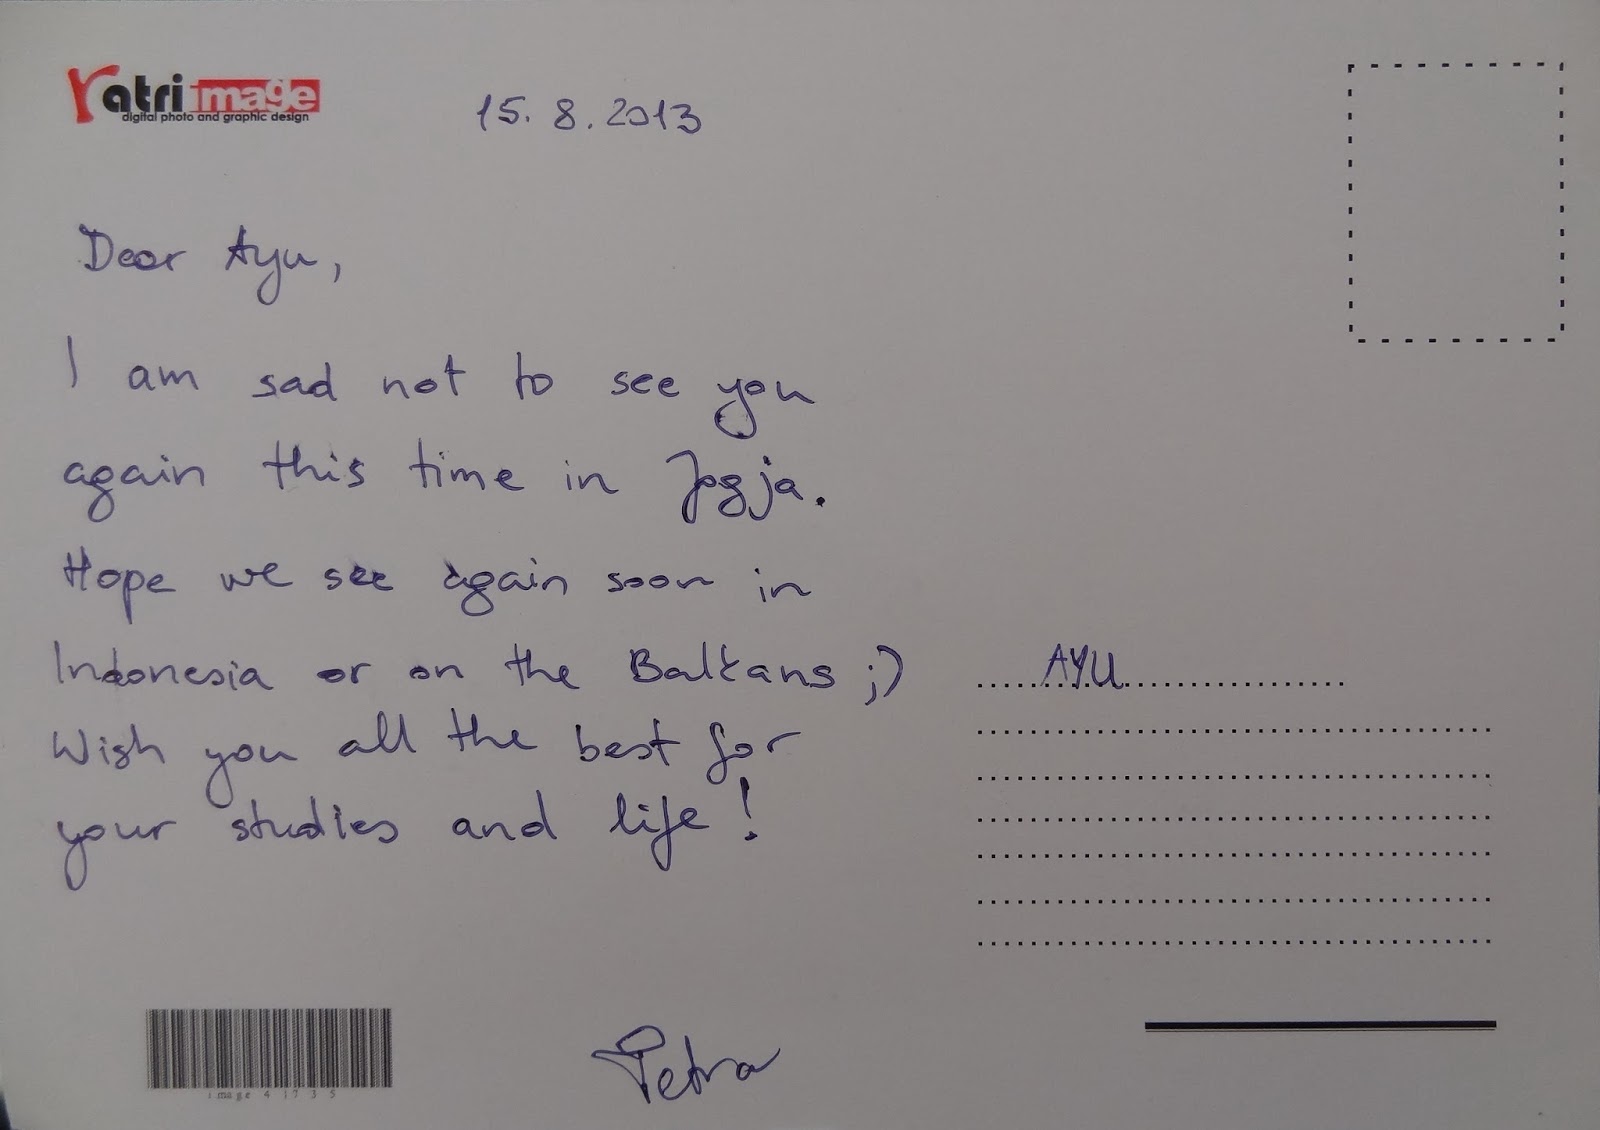 ratri image
digital photo and graphic design
15. 8. 2013
Dear Ayu,
I am sad not to see you
again this time in Jogja.
Hope we see again soon in
Indonesia or on the Balkans ;)
Wish you all the best for
your studies and life!
Petra
AYU
image 41735